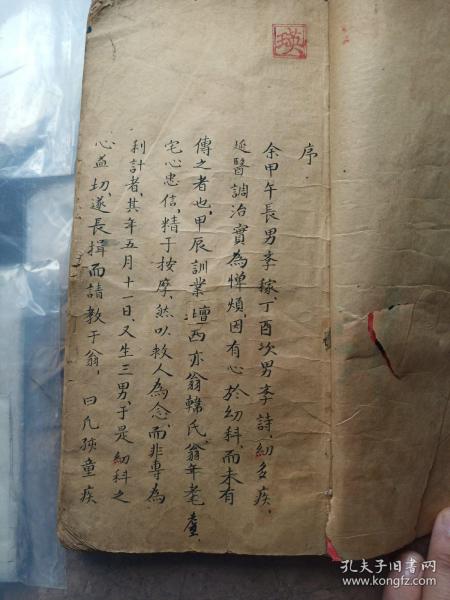 瑛
序
余甲午長男李稼、丁酉次男李詩、幼多疾、
延醫調治實為憚煩、因有心於幼科、而未有
傳之者也、甲辰訓業壇西亦翁韓氏、翁年老
宅心忠信、精于按摩、然以救人為念、而非專為
利計者、其年五月十一日、又生三男、于是幼科之
心益切、遂長揖而請教于翁、曰凡孩童疾
孔夫子旧书网
www.kongfz.com